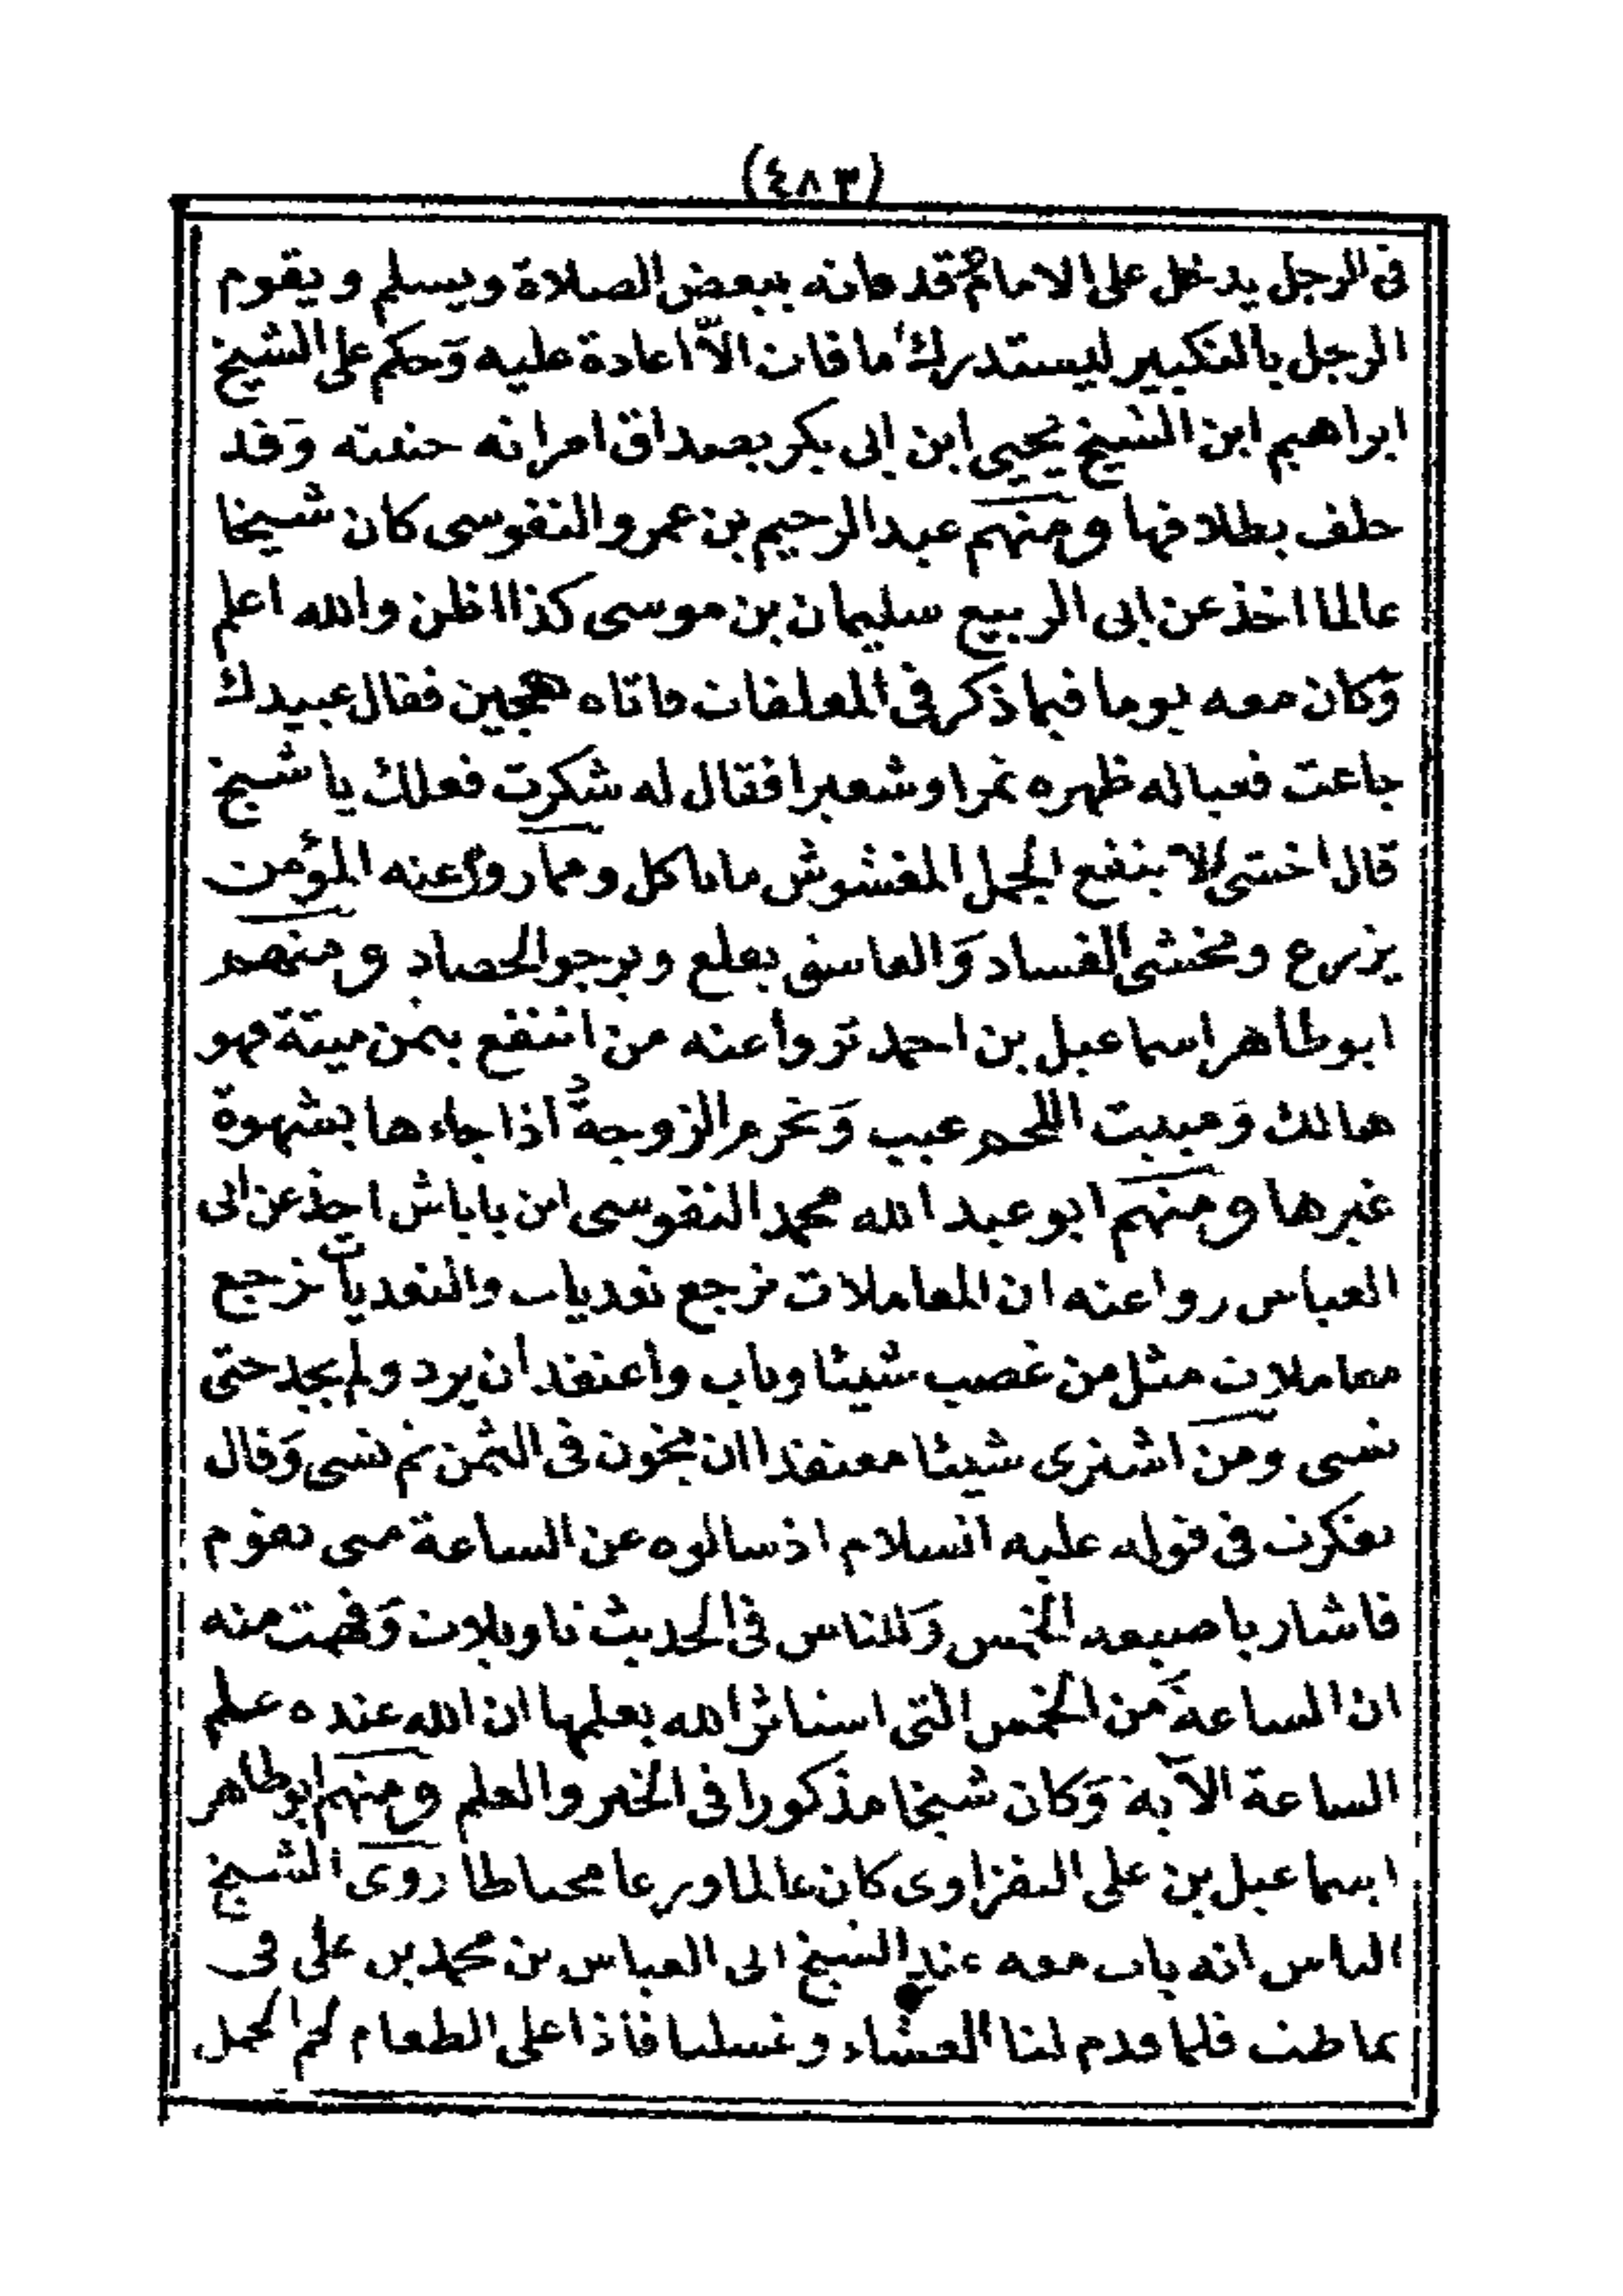 (٤٨٣)
فى الرجل يدخل على الامام ثم قد فاته ببعض الصلاة ويسلم ويقوم
الرجل بالتكبير ليستدرك ما فات الاّ اعادة عليه وَحكم على الشيخ
ابراهيم ابن الشيخ يحيى ابن ابى بكر بصداق امراته حنثته وَقد
حلف بطلاقها ومنهم عبد الرحيم بن عمرو النفوسى كان شيخا
عالما اخذ عن ابى الربيع سليمان بن موسى كذا اظن والله اعلم
وَكان معه يوما فيما ذكر فى المعلقات فاتاه هجين فقال عبيدك
جاعت فعبا له ظهره تمرا وشعيرا فقال له شكرت فعلك يا شيخ
قال اخشى الا ينفع الجمل المغشوش ما ياكل ومما روى عنه المؤمن
يزرع ويخشى الفساد وَالفاسق يقلع ويرجو الحصاد ومنهم
ابو طاهر اسماعيل بن احمد تروا عنه من انتفع بثمن ميتة فهو
هالك وَمبيت اللحم عيب وَتحرم الزوجة اذا جاءها بشهوة
غيرها ومنهم ابو عبد الله محمد النفوسى ابن باباش اخذ عن ابى
العباس روا عنه ان المعاملات ترجع تعديات والتعديات ترجع
معاملات مثل من غصب شيئا وتاب واعتقد ان يرد ولم يجد حتى
نسى ومن اشترى شيئا معتقدا ان يخون فى الثمن ثم نسى وَقال
تفكرت فى قوله عليه السلام اذ سالوه عن الساعة متى تقوم
فاشار باصبعه الخمس وَللناس فى الحديث تاويلات وَفهمت منه
ان الساعة من الخمس التى استاثر الله بعلمها ان الله عنده علم
الساعة الآية وَكان شيخا مذكورا فى الخير والعلم ومنهم ابو طاهر
اسماعيل بن على النفزاوى كان عالما ورعا محتاطا روى الشيخ
الياس انه بات معه عند الشيخ ابى العباس بن محمد بن على فى
تماطت فلما قدم لنا العشاء وغسلنا فاذا على الطعام لحم الجمل